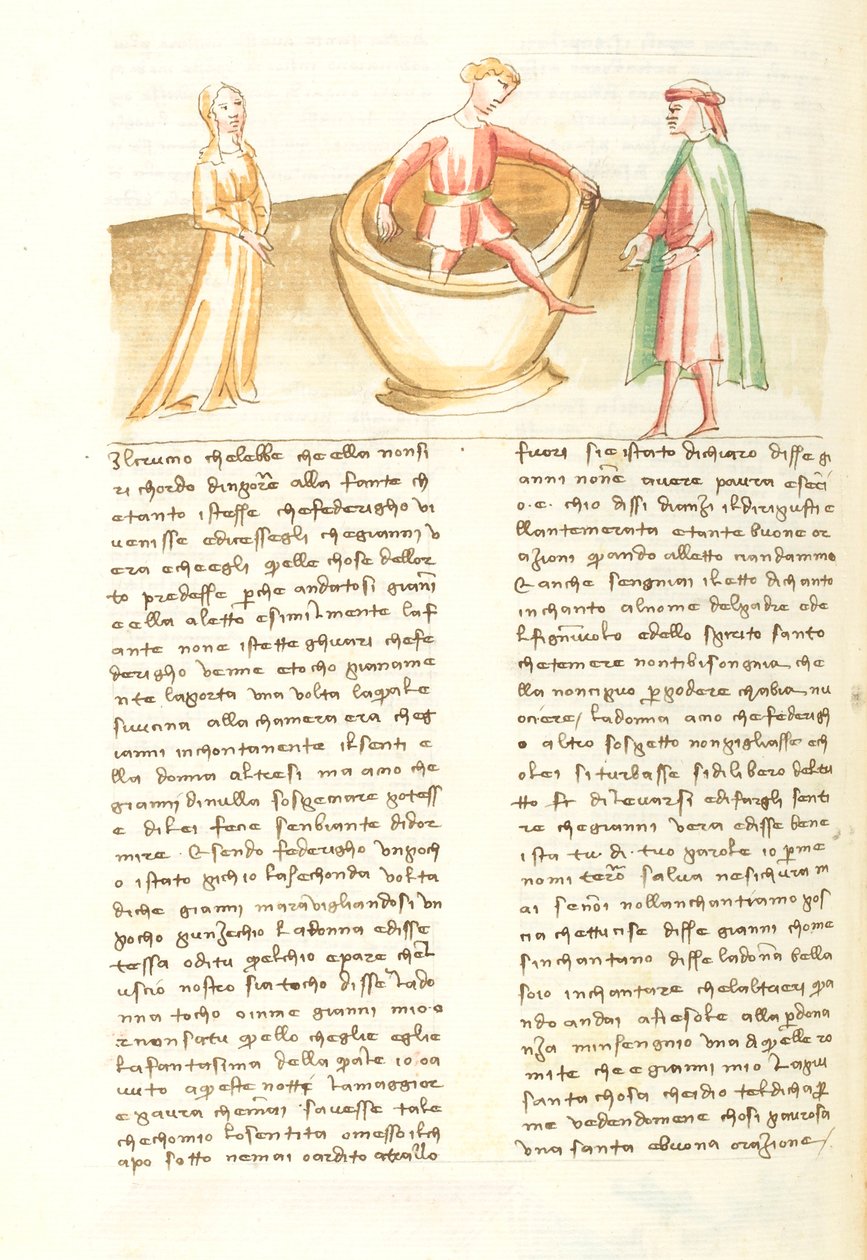 Il cruc̄io chelebbe che ella nonsi
ri chordo dingōre alla fante ch
etanto istesse chefederigho vi
venisse edicessegli chegianni v
era echeegli quelle chose dellor
to predesse perche andatosi giāni
e ella aletto esimilmente laf
ante none istette ghuari chefe
derigho venne etocho pianame
nte laporta una volta laquale
sivicina alla chamera era cheg
ianni inchontanente ilsenti e
lla donna altresi ma acio che
gianni dinulla sospeciare potess
e dilei fece senbiante didor
mire · Esendo federigho unpoch
o istato pichio lasechonda volta
diche gianni maravigliandosi un
pocho punzechio ladonna edisse
tessa oditu quelchio epare chel
uscio nostro sia tocho disse lado
nna tocho oime gianni mio o
r nonsatu quello cheglie eglie
lafantasima della quale io oa
vuto aqueste notte lamaggior
e paura chemai savesse tale
chechomio losentita omesso ilch
apo sotto nemai oardito atrallo
fuori sie istato dichiaro disse gi
anni nonē avere paura esecī
o·e· chio dissi dianzi ildirigusti e
llantemerata etante buone or
azioni quando alletto ciandammo
Eanche sengniai iletto dichanto
inchanto alnome delpadre ede
lfigniuolo edello spirito santo
chetemere nontibisongnia che
lla nonci puo per podere chabia nu
ociere / ladonna acio chefederigh
o altro sospetto nonpigliasse ech
olei siturbasse sidilibero deltu
tto di levarsi edifargli senti
re chegianni vera edisse bene
ista tu di tuo parole io perme
nomi terō salva nesichura m
ai senōi nollanchantiamo pos
cia chettucise disse gianni chome
sinchantano disse ladōna bella
soio inchantare chelaltrieri qua
ndo andai afiesole alla perdona
nza minsengnio una di quelle ro
mite che e gianni mio lapiu
santa chosa cheidio teldicha per
me vedendomene chosi paurosa
una santa ebuona orazione /